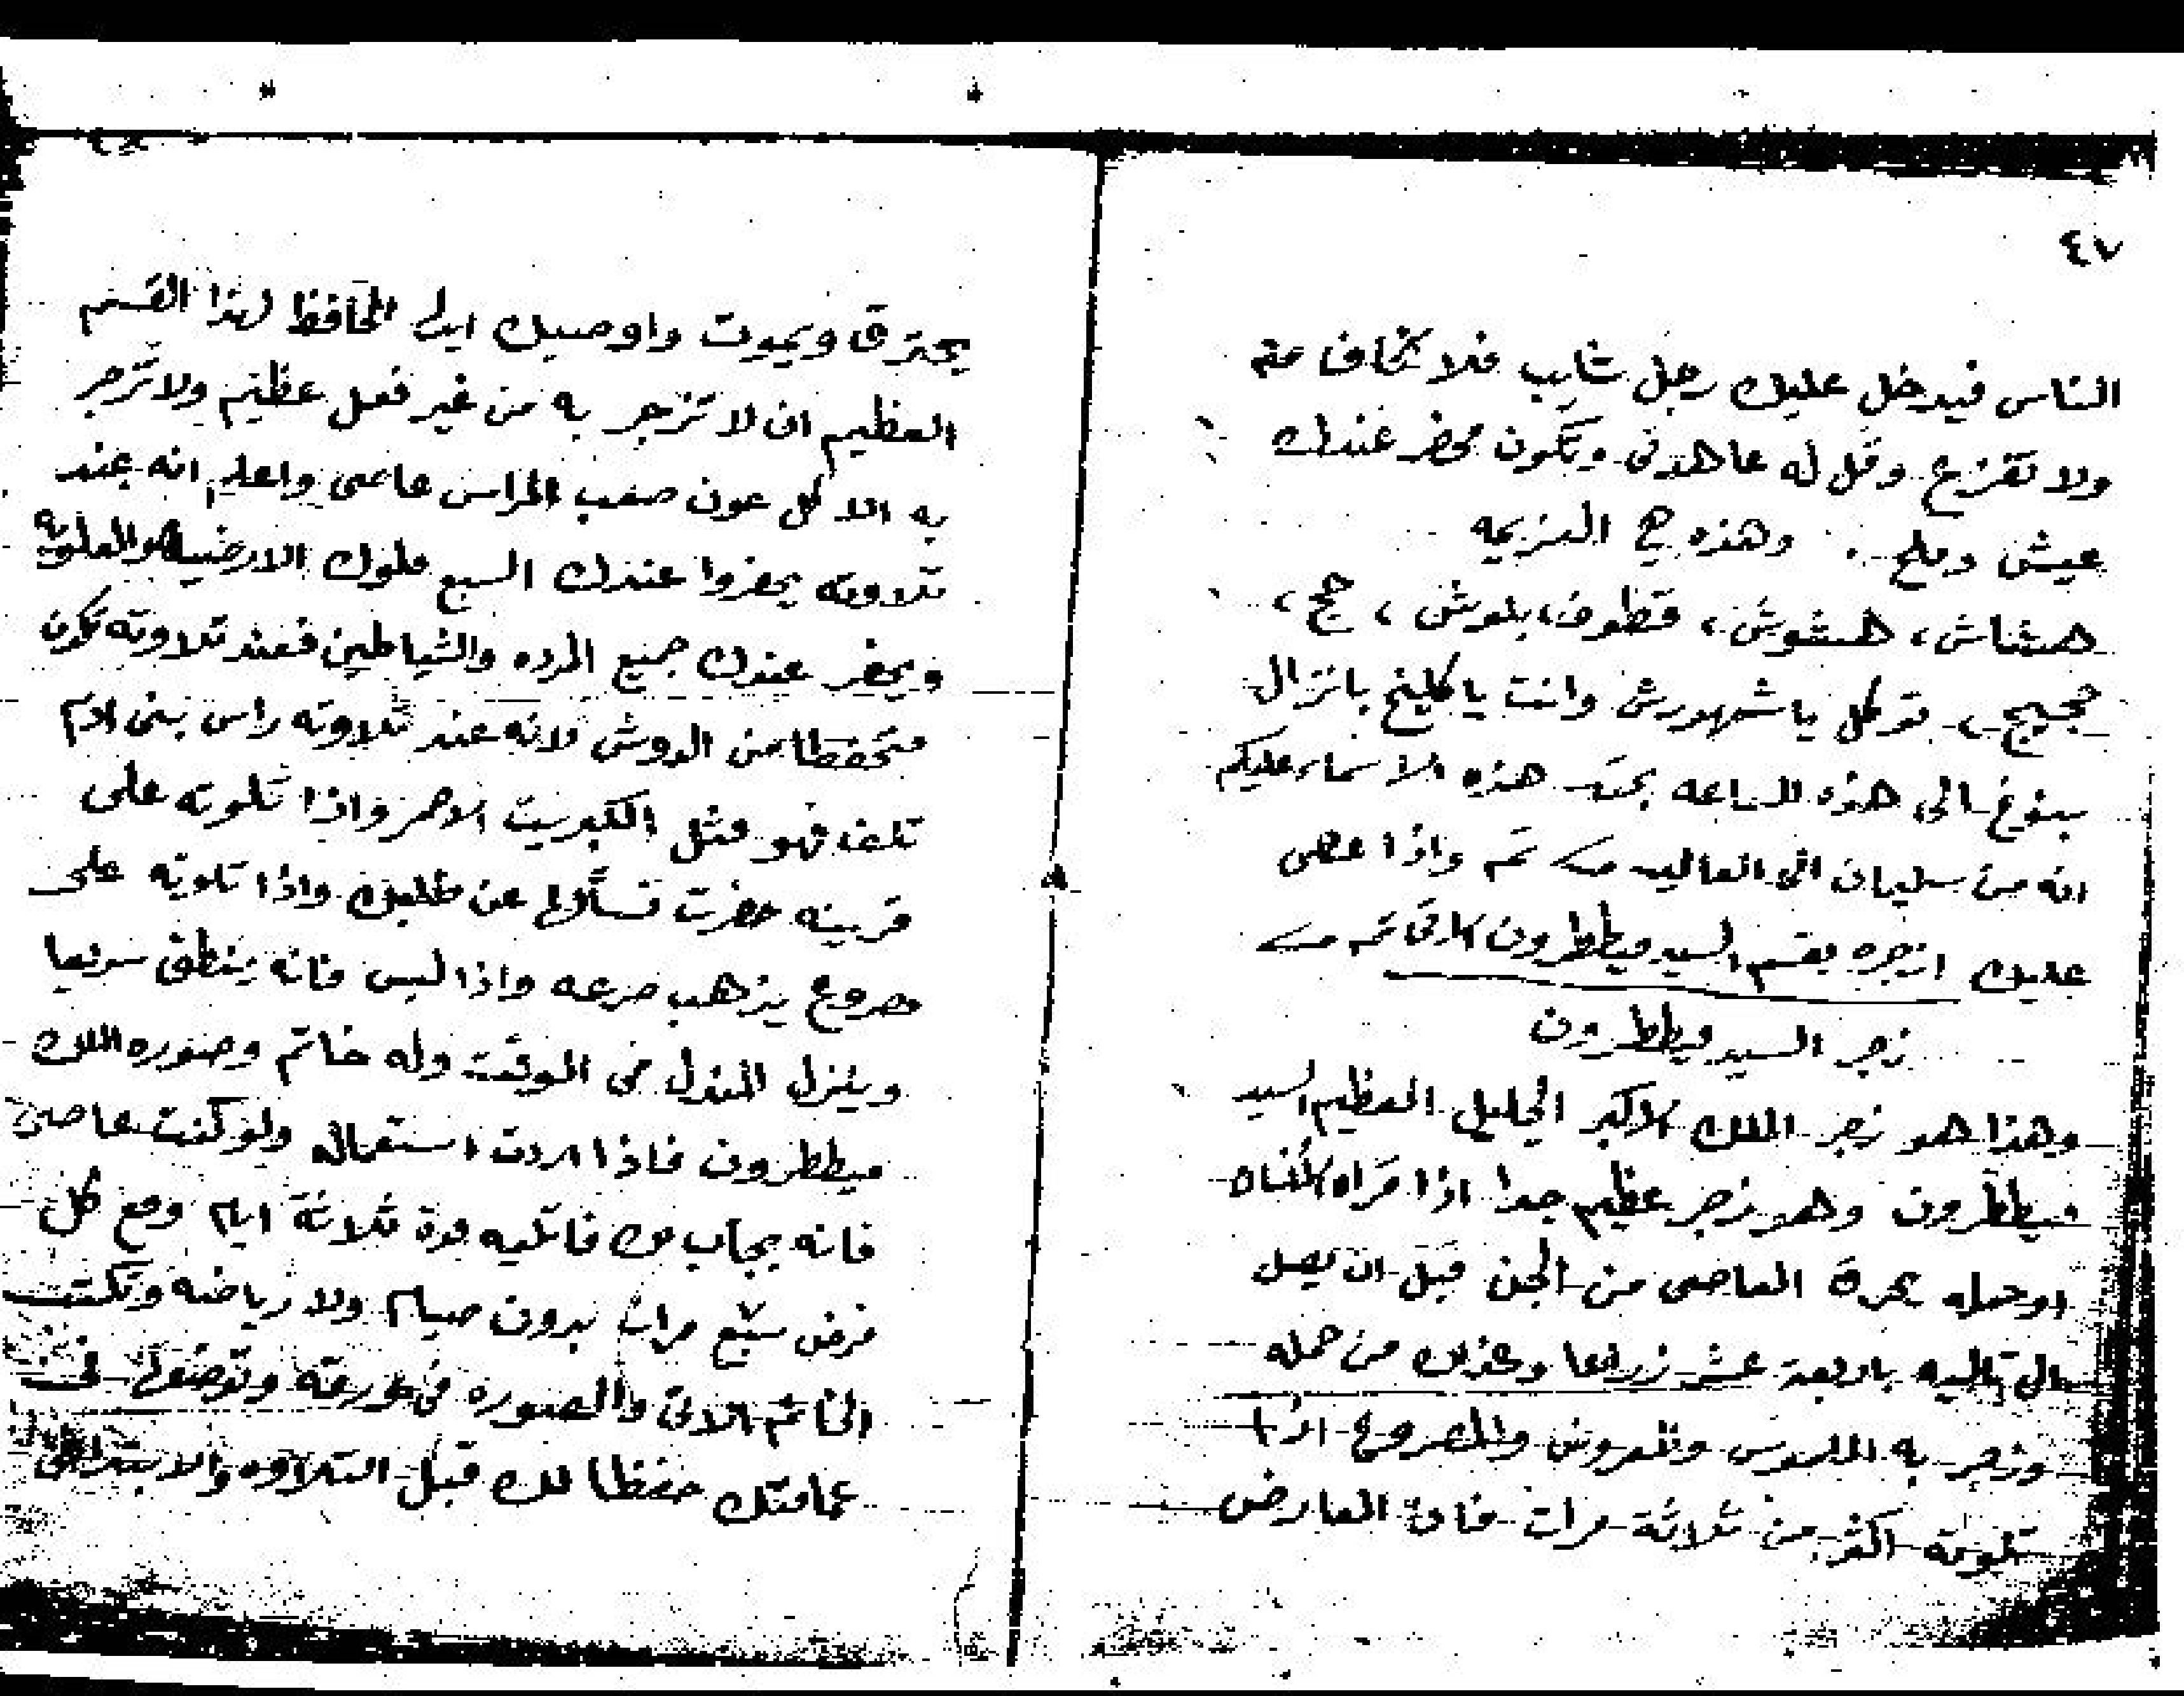 ٤٧
الناس فيدخل عليك رجل شايب فلا تخاف منه
ولا تفزع وقل له عاهدنى ويكون محضر عندك
عيش وملح . وهذه هى العزيمه
هشناش ، هشوش ، قطوف ، بلوش ، حج ،
حجيج ، توكل يا شمهورش وانت يا كليخ بانزال
الى هذه الساعه بحق هذه الاسماء عليكم
انه من سليمان الى تم واذا عصى
عليك ازجره بقسم السيد ميططرون الاتى تم
زجر السيد ميططرون
وهذا هو زجر الملك الاكبر الجليل العظيم السيد
ميططرون وهو زجر عظيم جدا اذا قراه الانسان
او حمله يحرق العاصى من الجن قبل ان يصل
الى تاليه باربعة عشر ذراعا وكذلك من حمله
وزجر به الملبوس والمصروع اذا
تلوته اكثر من ثلاثة مرات فان العارض
يحترق ويموت واوصيك ايها الحافظ لهذا القسم
العظيم ان لا تزجر به من غير فعل عظيم ولا تزجر
به الا كل عون صعب المراس عاصى واعلم انه عند
تلاوته يحضروا عندك السبع ملوك الارضيه والعلويه
ويحضر عندك جميع المرده والشياطين فعند تلاوته تكون
متحفظا من الدوش لانه عند تلاوته راس بنى ادم
تلف فهو مثل الكبريت الاحمر واذا تلوته على
قرينه حضرت تسألها عن طلبك واذا تلوته على
مصروع يذهب صرعه واذا لبس فانه ينطق سريعا
وينزل المندل فى الوقت وله خاتم وصوره الملك
ميططرون فاذا اردت استعماله ولو كنت عاصى
فانه يجاب لك فاتليه مدة ثلاثة ايام ومع كل
فرض سبع مرات بدون صيام ولا رياضه وتكتب
الخاتم الاتى والصوره فى ورقه وتوضعها تحت
عمامتك حفظا لك قبل التلاوه والابتدا